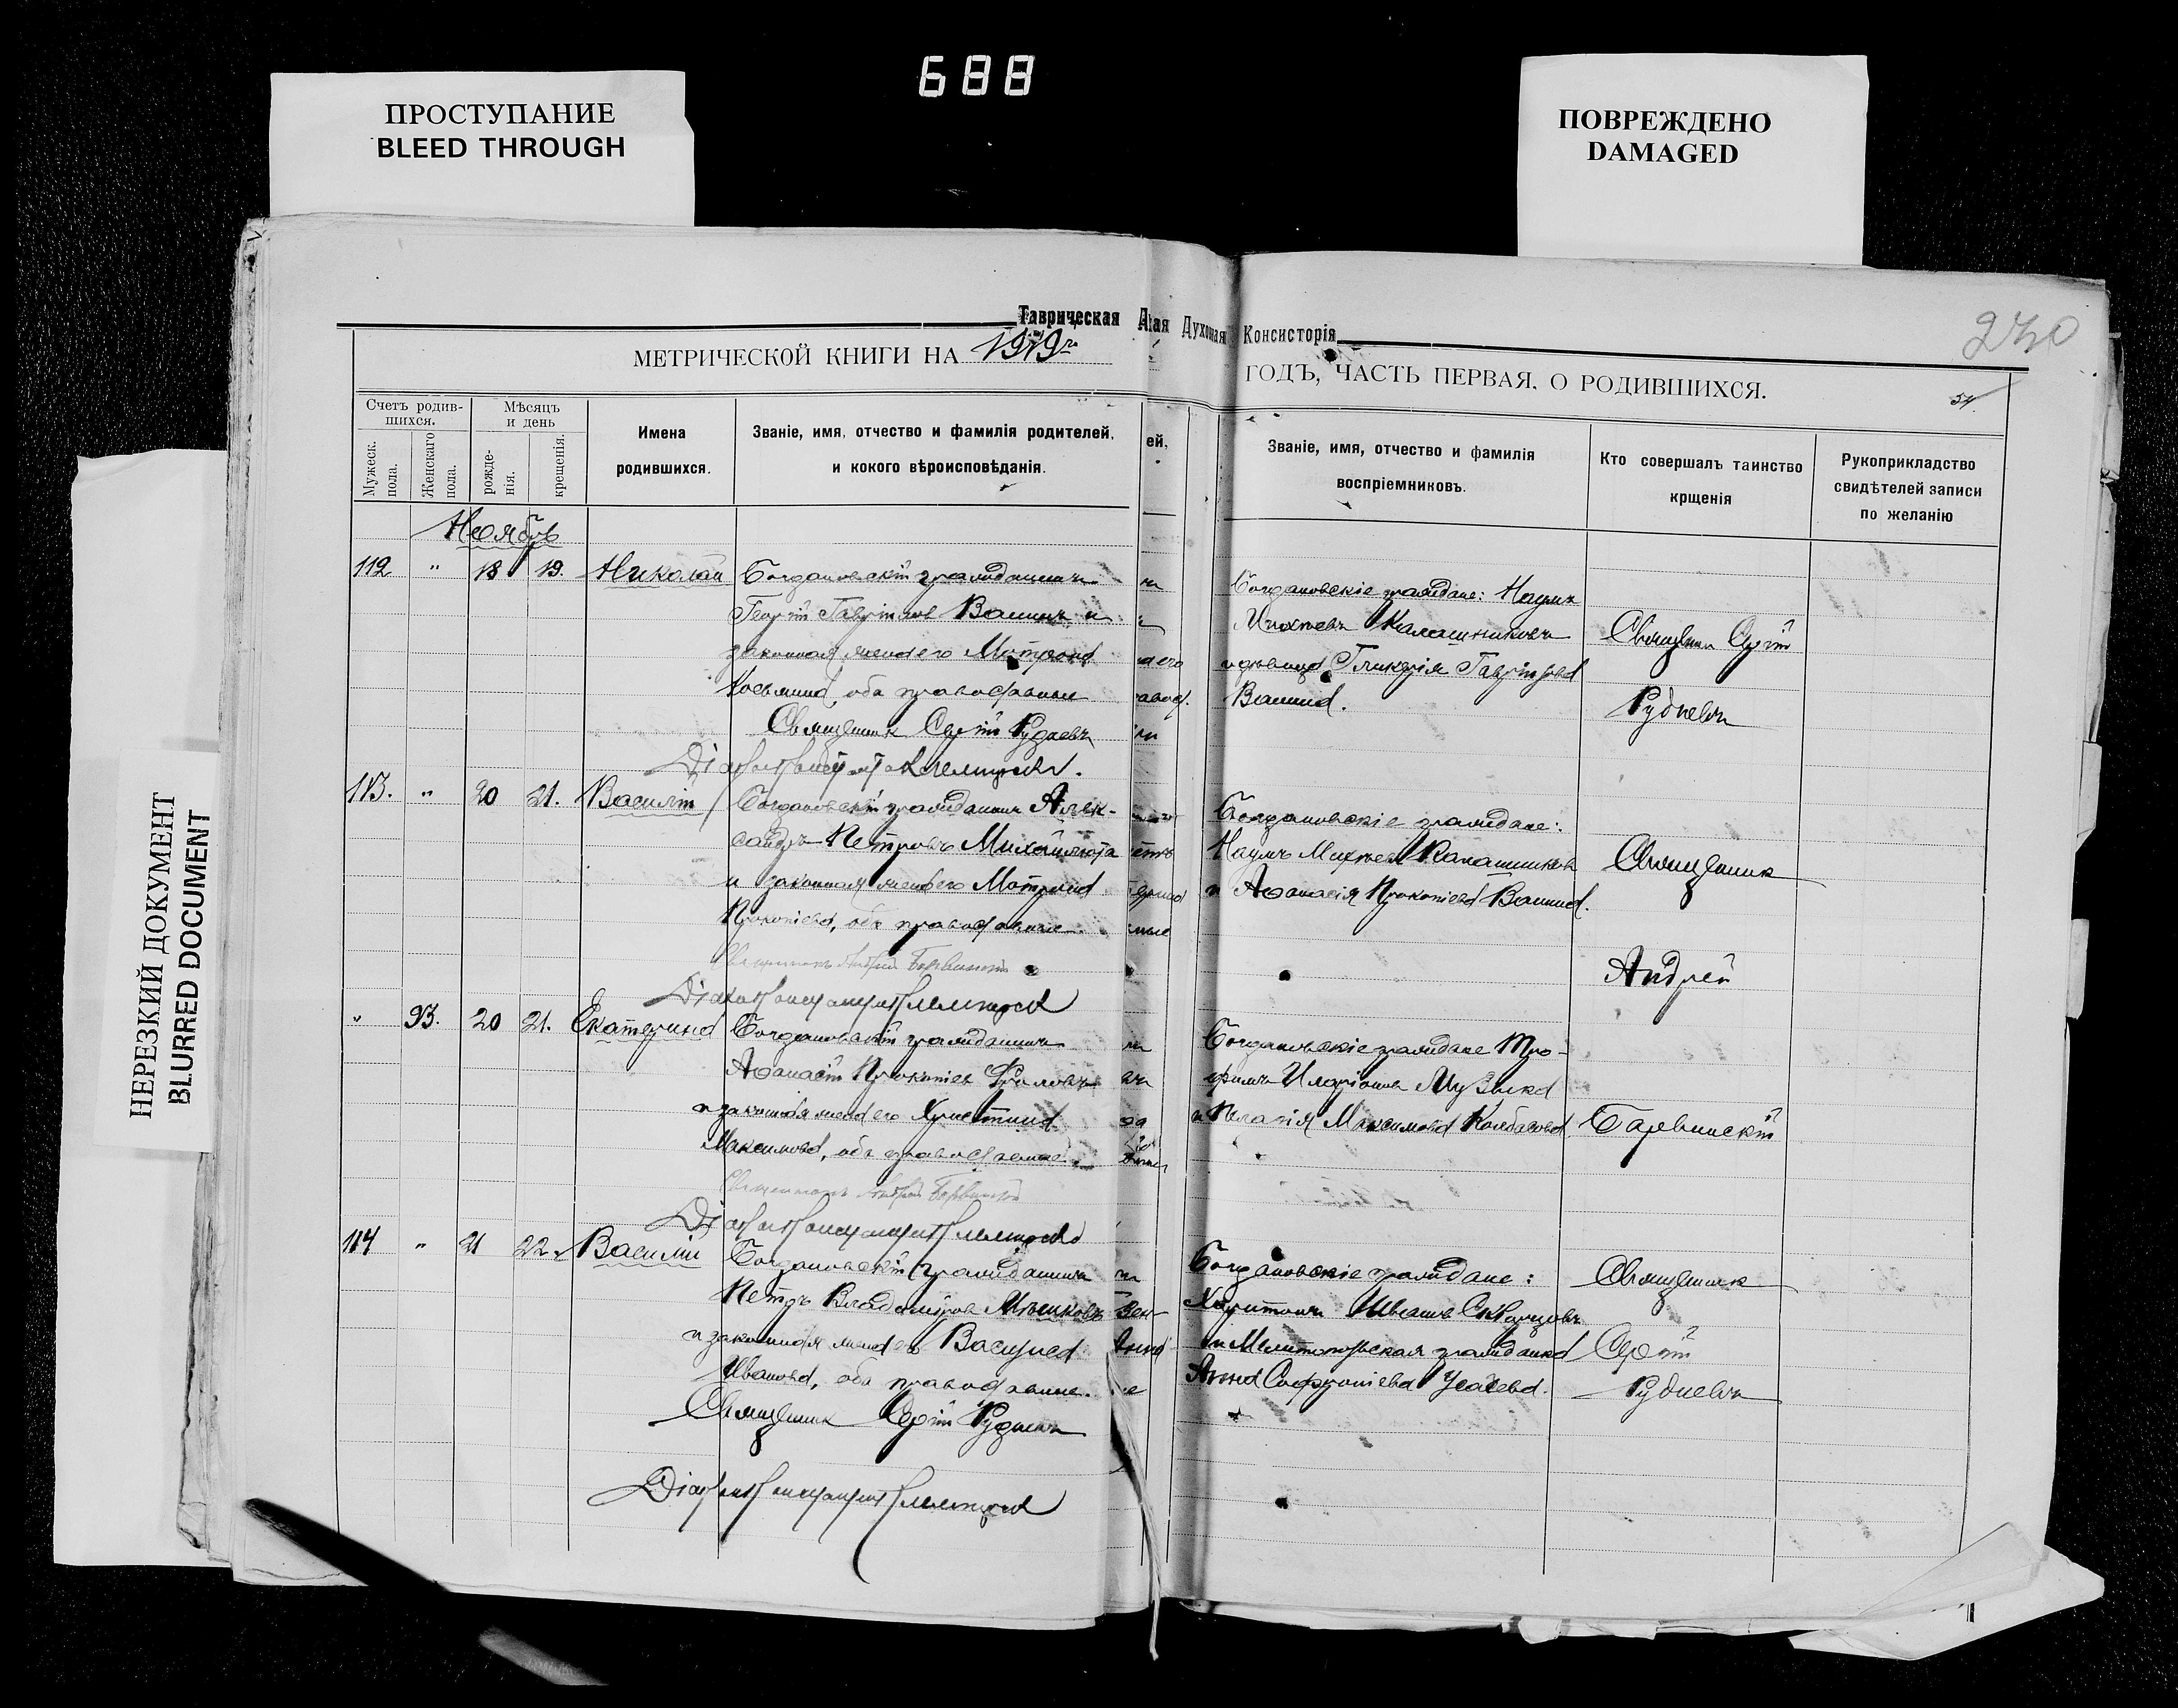 688
ПРОСТУПАНИЕ
BLEED THROUGH
ПОВРЕЖДЕНО
DAMAGED
НЕРЕЗКИЙ ДОКУМЕНТ
BLURRED DOCUMENT
Таврическая Духовная Консисторія
270
МЕТРИЧЕСКОЙ КНИГИ НА 1919 г.
ГОДЪ, ЧАСТЬ ПЕРВАЯ, О РОДИВШИХСЯ.
Счетъ родившихся.
Мужеск. пола.
Женскаго пола.
Мѣсяцъ и день
рожденія.
крещенія.
Имена родившихся.
Званіе, имя, отчество и фамилія родителей, и кокого вѣроисповѣданія.
Званіе, имя, отчество и фамилія воспріемниковъ.
Кто совершалъ таинство крщенія
Рукоприкладство свидѣтелей записи по желанію
Ноябрь
112 " 18 19. Николай
Богдановскій гражданинъ
Георгій Гавріилов Ванинъ и
законная жена его Матрона
Косьмина, оба православные
Священник Сергій Рудневъ
Діаконъ Константинъ
Богдановскіе граждане: Наумъ
Михѣевъ Калашниковъ
и дѣвица Гликерія Гавріилова
Ванина.
Священник Сергій
Рудневъ
113. " 20 21. Василій
Богдановскій гражданинъ Алек-
сандръ Петровъ Михайлюта
и законная жена его Матрона
Прокопіева, оба православные
Священникъ Андрей
Діаконъ Константинъ
Богдановскіе граждане:
Наумъ Михѣев Калашников
и Афанасія Прокопіева Ванина.
Священник
Андрей
" 93. 20 21. Екатерина
Богдановскій гражданинъ
Афанасій Прокопіев Фроловъ
и законная жена его Христина
Максимова, оба православные
Священникъ Андрей
Діаконъ Константинъ
Богдановскіе граждане Тро-
фимъ Иларіонов Музыка
и Пелагія Максимова Колбасова.
114 " 21 22. Василій
Богдановскій гражданинъ
Петръ Владиміров Мѣшковъ
и законная жена его Васируса
Иванова, оба православные.
Священник Сергій Рудневъ
Діаконъ Константинъ
Богдановскіе граждане:
Харитонъ Иванов Скворцовъ
и Мелитопольская гражданка
Анна Софроніева Усачева.
Священник
Сергій
Рудневъ